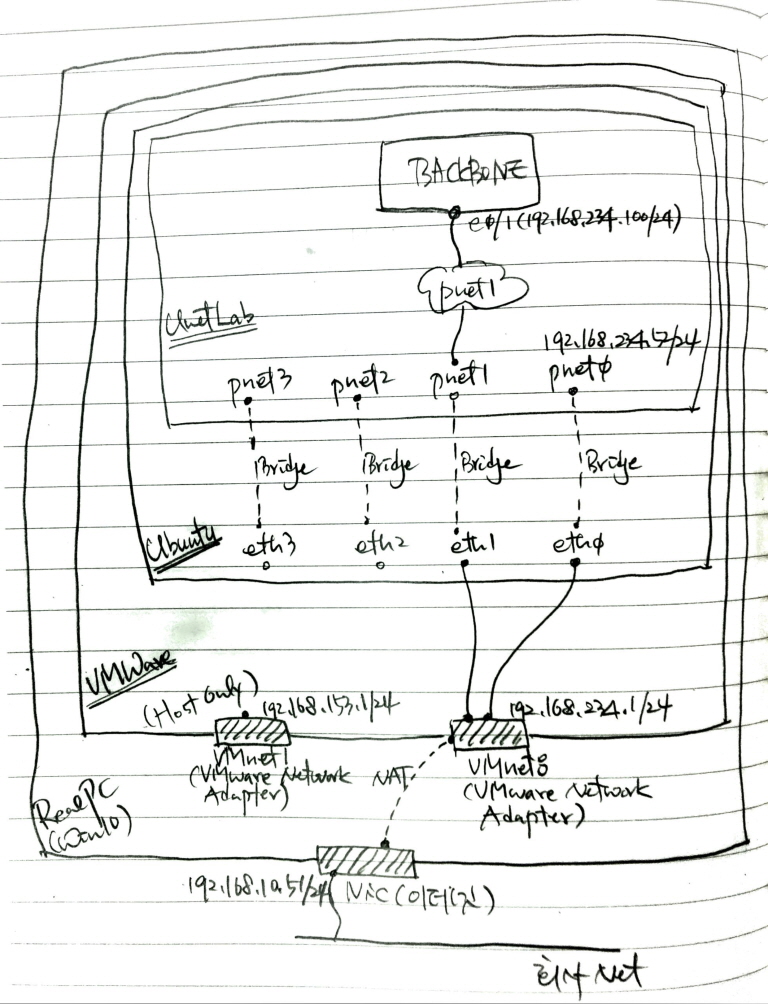 BACKBONE
e0/1 (192.168.234.100/24)
pnet1
UnetLab
192.168.234.52/24
pnet3
pnet2
pnet1
pnet0
Bridge
Bridge
Bridge
Bridge
Ubuntu
eth3
eth2
eth1
eth0
VMWare
(Host Only)
192.168.153.1/24
192.168.234.1/24
VMnet1
(VMware Network
Adapter)
NAT
VMnet8
(VMware Network
Adapter)
Real PC
(Win10)
192.168.10.51/24
NIC (이더넷)
회사 Net